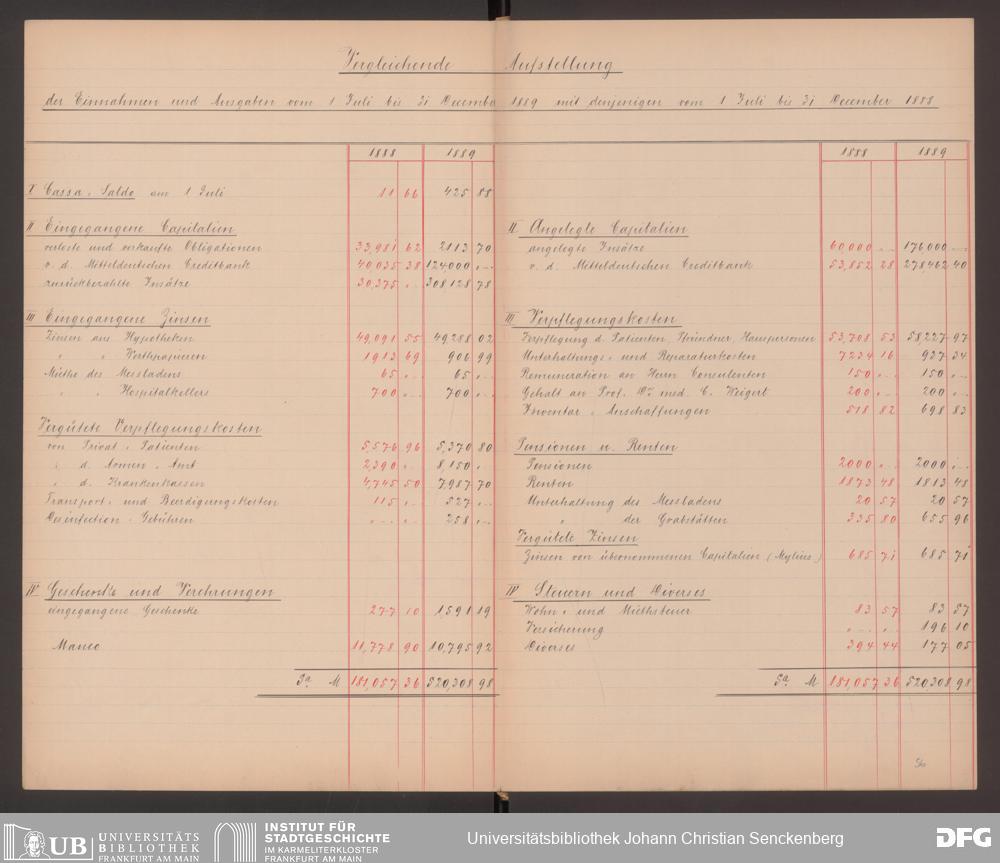 Vergleichende Aufstellung
der Einnahmen und Ausgaben vom 1 Juli bis 31 December 1889 mit denjenigen vom 1 Juli bis 31 December 1888
1888 1889
I Cassa-Saldo am 1 Juli 11 66 425 88
II Eingegangene Capitalien
verloste und verkaufte Obligationen 33,981 62 2113 70
v. d. Mitteldeutschen Creditbank 40,035 38 124,000 „ –
zurückbezahlte Insätze 30,375 „ 308,128 78
III Eingegangene Zinsen
Zinsen aus Hypotheken 49,091 55 49,288 02
„ „ Werthpapieren 1913 69 906 99
Miethe des Messladens 65 „ – 65 „ –
„ „ Hospitalkellers 700 „ – 700 „ –
Vergütete Verpflegungskosten
von Privat-Patienten 5,576 96 5,370 80
„ d. Armen-Amt 2,390 „ 8,150 „
„ d. Krankenkassen 4,745 50 7,987 70
Transport- und Beerdigungskosten 115 „ 527 „
Desinfection-Gebühren „ – „ – 258 „ –
IV Geschenke und Verehrungen
eingegangene Geschenke 277 10 1,591 19
Manco 11,778 90 10,795 92
Sa. M 181,057 36 520,308 98
1888 1889
II Angelegte Capitalien
angelegte Insätze 60,000 – 176,000 –
v. d. Mitteldeutschen Creditbank 53,852 28 278,462 40
III Verpflegungskosten
Verpflegung d. Patienten, Pfründner, Hauspersonen 53,708 53 58,227 97
Unterhaltungs- und Reparaturkosten 7234 16 937 34
Remuneration an Herrn Consulenten 150 „ – 150 „ –
Gehalt an Prof. Dr. med. C. Weigert 200 „ – 200 „ –
Inventar-Anschaffungen 518 82 698 83
Pensionen u. Renten
Pensionen 2000 „ 2000 „ –
Renten 1873 48 1813 48
Unterhaltung des Messladens 20 57 20 57
„ der Grabstätten 335 80 655 96
Vergütete Zinsen
Zinsen von übernommenen Capitalien (Mylius) 685 71 685 71
IV Steuern und Diverses
Wohn- und Miethsteuer 83 57 83 57
Versicherung „ – „ 196 10
Diverses 394 44 177 05
Sa. M 181,057 36 520,308 98
UB UNIVERSITÄTS BIBLIOTHEK FRANKFURT AM MAIN
INSTITUT FÜR STADTGESCHICHTE IM KARMELITERKLOSTER FRANKFURT AM MAIN
Universitätsbibliothek Johann Christian Senckenberg
DFG